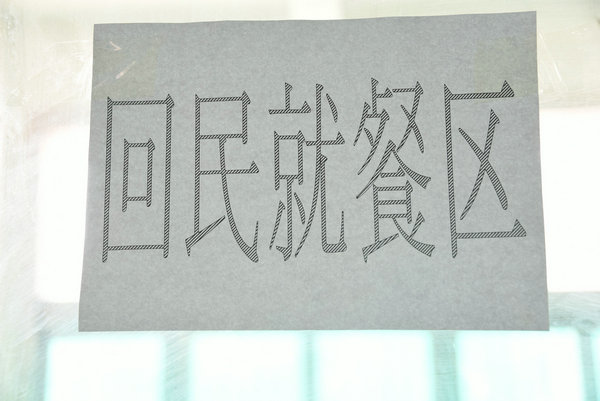 回民就餐区